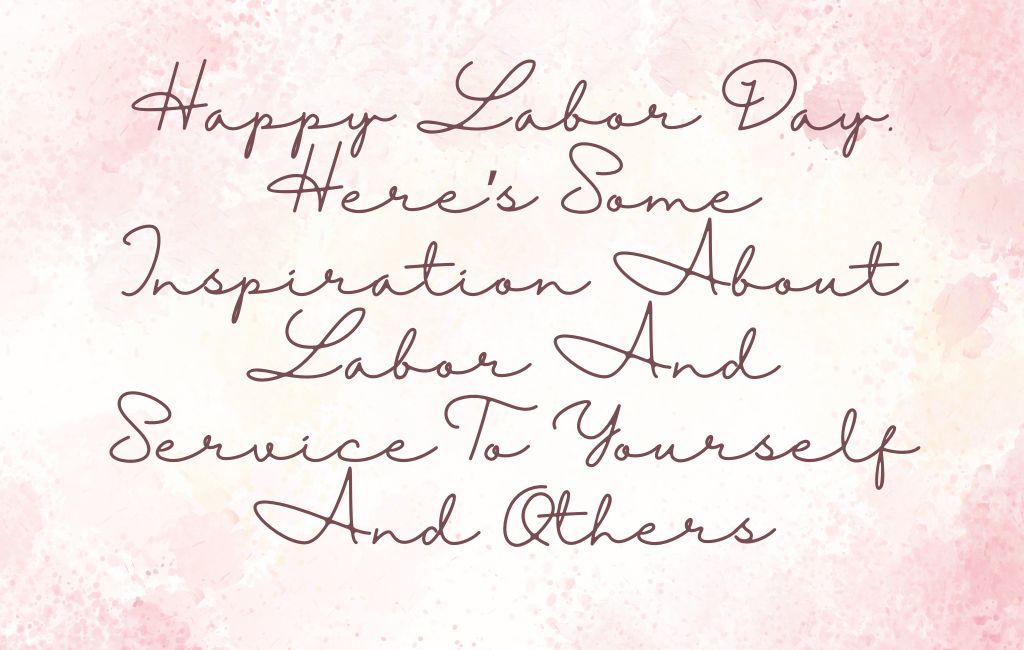 Happy Labor Day.
Here's Some
Inspiration About
Labor And
Service To Yourself
And Others